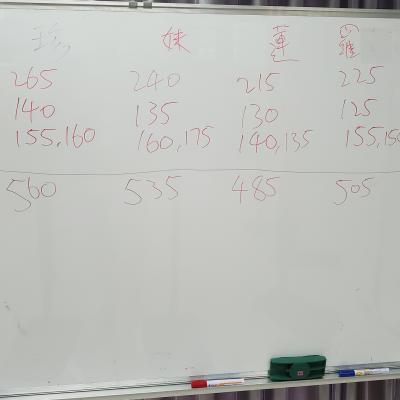 珍 妹 蓮 羅
265 240 215 225
140 135 130 125
155,160 160,175 140,135 155,150
560 535 485 505